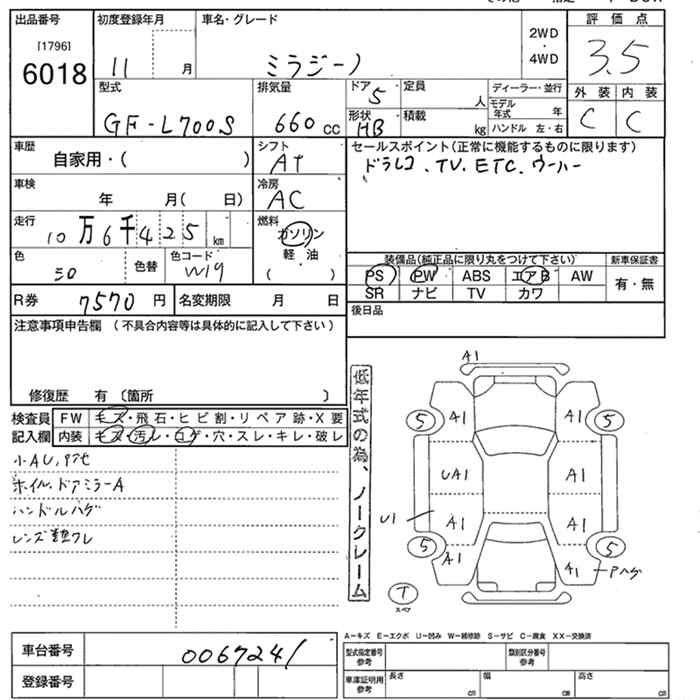 出品番号 初度登録年月 車名・グレード 2WD・4WD 評価点
[1796]
6018 11 月 ミラジーノ 3.5
型式 排気量 ドア 5 定員 人 ディーラー・並行 外装 内装
GF-L700S 660 cc 形状 HB 積載 kg モデル年式 年 C C
ハンドル 左・右
車歴 シフト セールスポイント(正常に機能するものに限ります)
自家用・( ) AT ドラレコ、TV、ETC、ウーハー
車検 冷房
年 月( 日) AC
走行 燃料
10万6千425km ガソリン
色 色替 色コード 軽油
30 W19 ( )
装備品(純正品に限り丸をつけて下さい) 新車保証書
PS PW ABS エアB AW 有・無
SR ナビ TV カワ
R券 7570円 名変期限 月 日 後日品
注意事項申告欄(不具合内容等は具体的に記入して下さい)
修復歴 有〔箇所 〕
検査員 FW キズ・飛石・ヒビ割・リペア跡・X要
記入欄 内装 キズ・汚レ・コゲ・穴・スレ・キレ・破レ
小AU,
ホイル、ドアミラーA
ハンドルハゲ
レンズ
低年式の為、ノークレーム
A1
5 A1 A1 5
UA1 A1
U1 A1 A1
5 A1 A1 5
Pハゲ
T
スペア
A-キズ E-エクボ U-凹み W-補修跡 S-サビ C-腐食 XX-交換済
車台番号 0067241
型式指定番号参考 類別区分番号参考
登録番号
車庫証明用参考 長さ cm 幅 cm 高さ cm